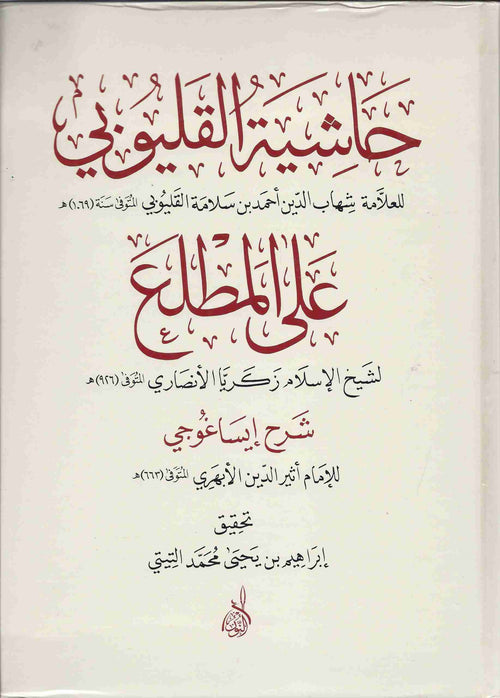 حَاشِيَةُ القَليُوبي
للعلّامة شِهاب الدّين أحمد بن سَلامَة القَليُوبي المتوفىٰ سَنة (١٠٦٩) هـ
عَلَى المَطْلَع
لشيخ الإسلام زكريّا الأنصَاري المتوفىٰ (٩٢٦) هـ
شرح إيسَاغُوجي
للإمَام أثير الدّين الأبهَري المتوفىٰ (٦٦٣) هـ
تحقِيق
إبراهيم بن يَحيَىٰ مُحمّد التِيتي